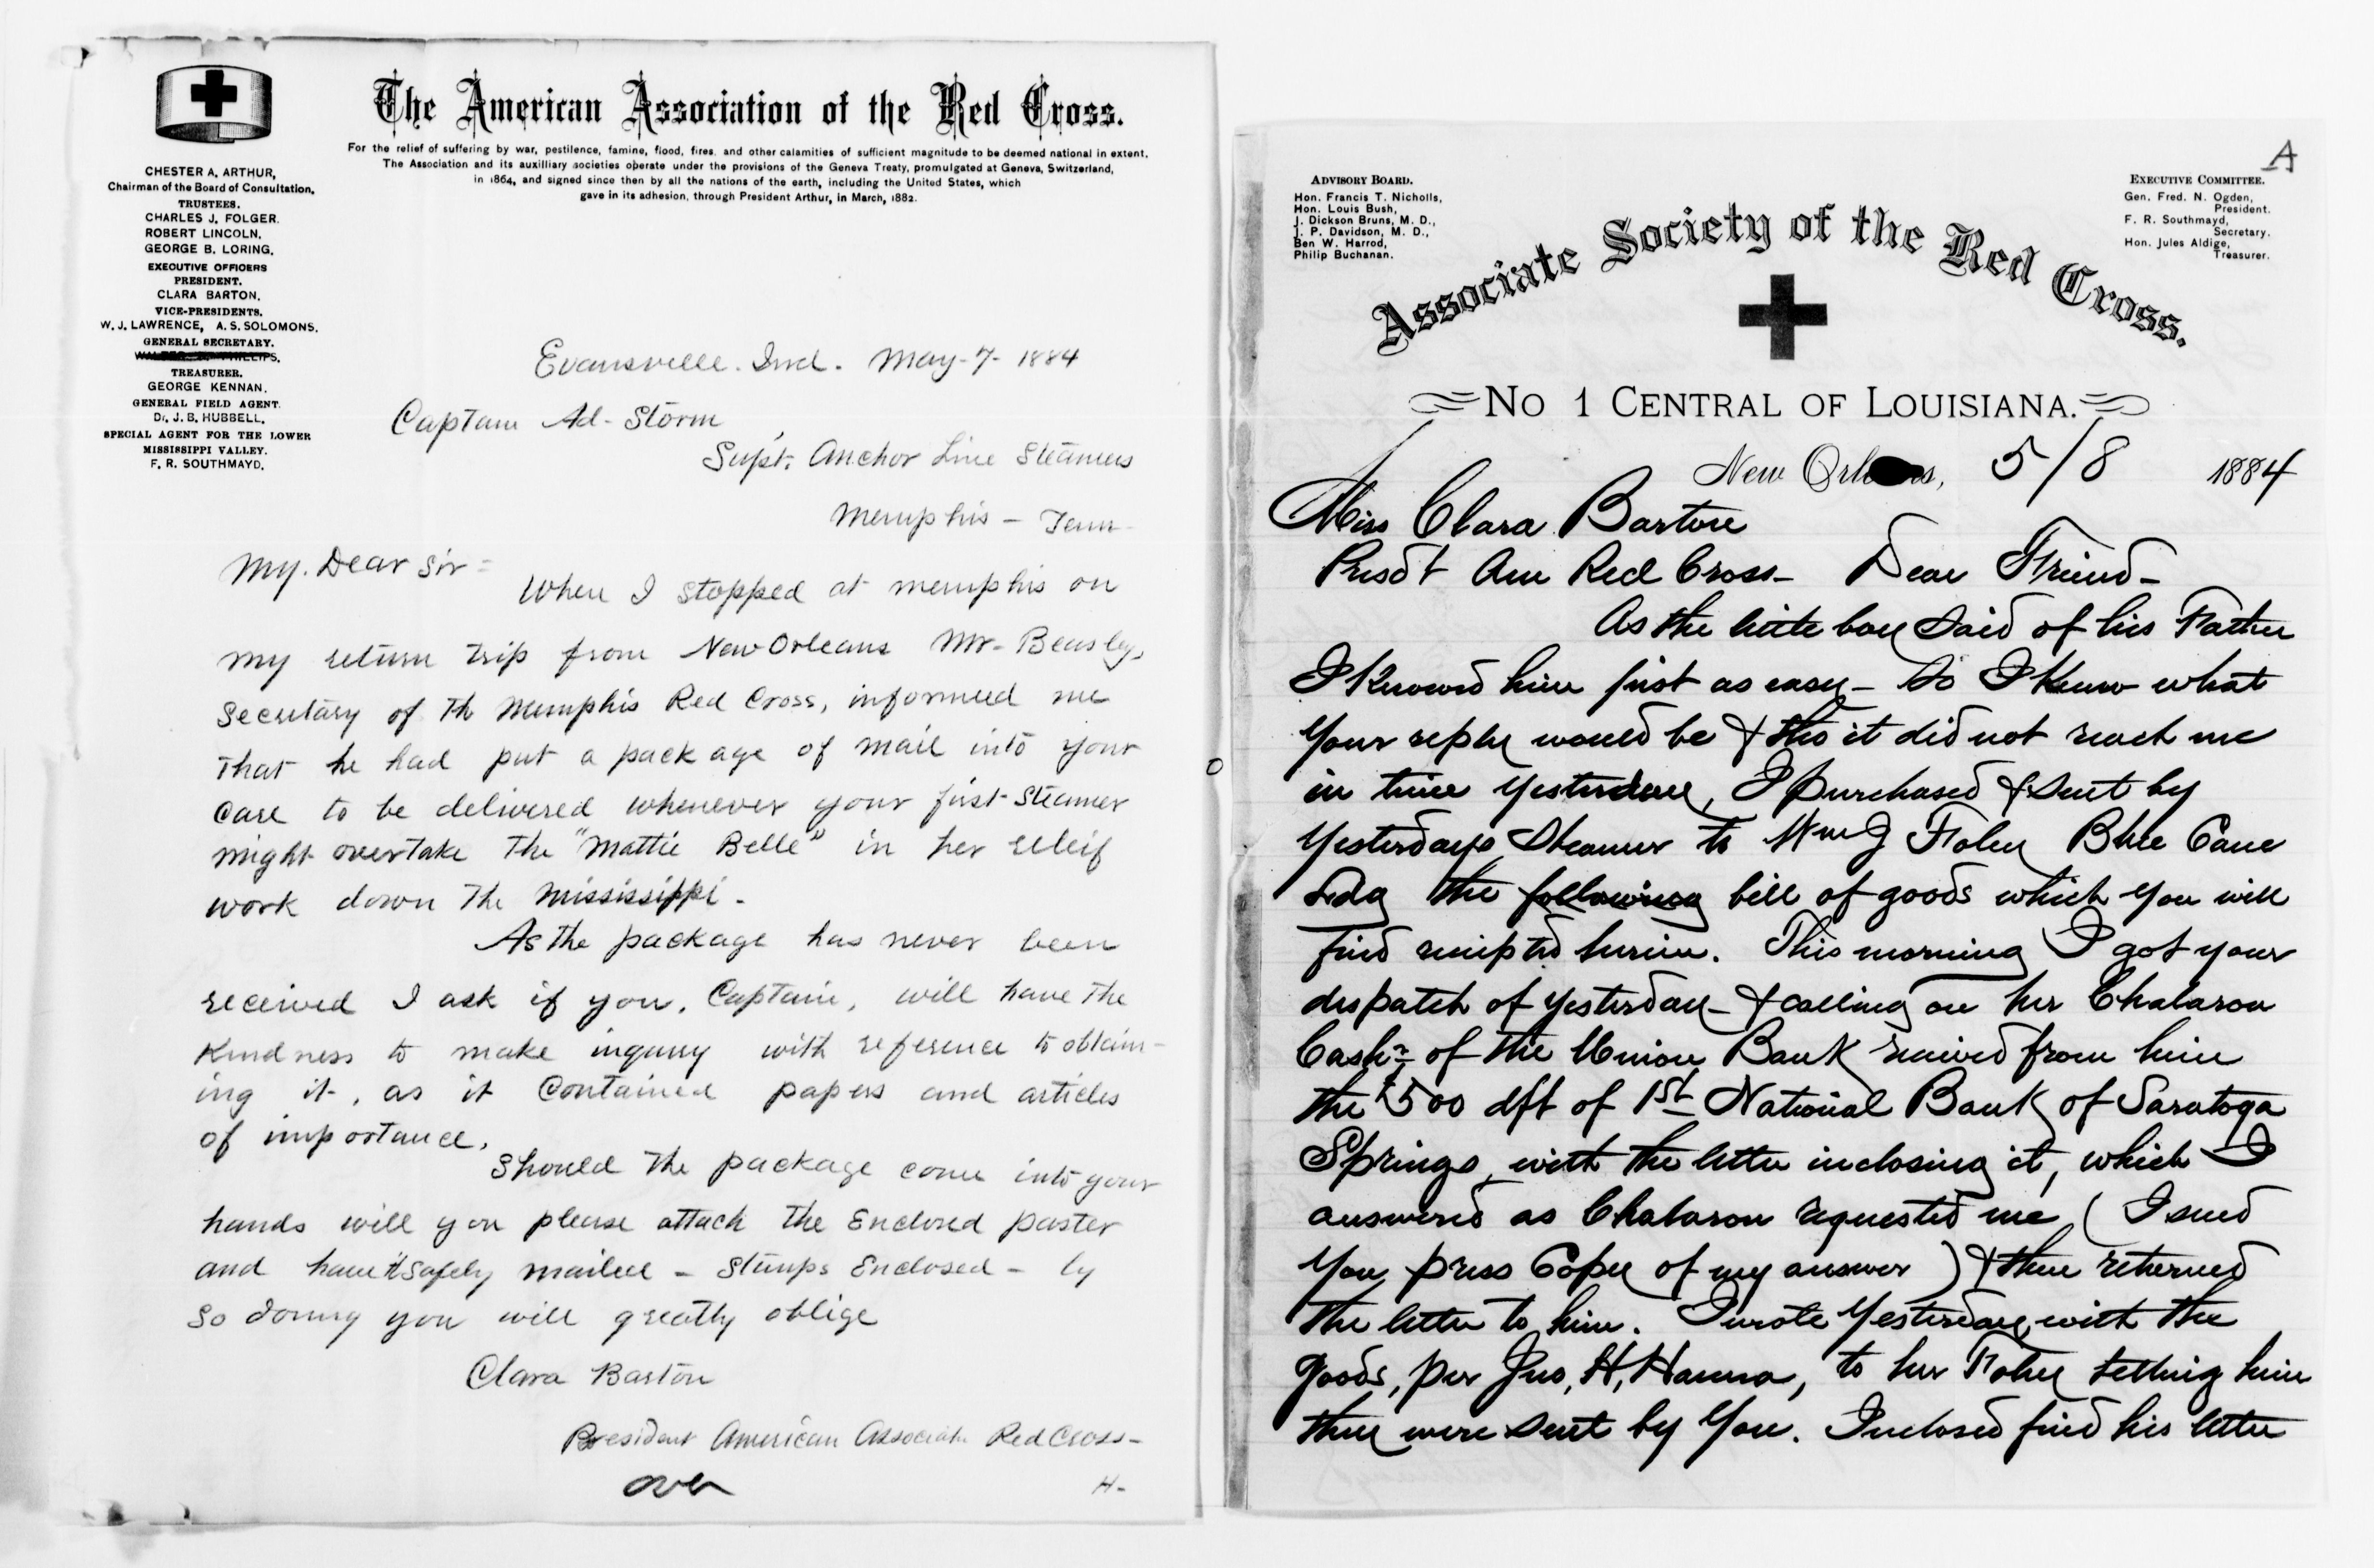 The American Association of the Red Cross.
For the relief of suffering by war, pestilence, famine, flood, fires, and other calamities of sufficient magnitude to be deemed national in extent.
The Association and its auxilliary societies operate under the provisions of the Geneva Treaty, promulgated at Geneva, Switzerland,
in 1864, and signed since then by all the nations of the earth, including the United States, which
gave in its adhesion, through President Arthur, in March, 1882.
CHESTER A. ARTHUR,
Chairman of the Board of Consultation.
TRUSTEES.
CHARLES J. FOLGER.
ROBERT LINCOLN.
GEORGE B. LORING.
EXECUTIVE OFFICERS
PRESIDENT.
CLARA BARTON.
VICE-PRESIDENTS.
W. J. LAWRENCE, A. S. SOLOMONS.
GENERAL SECRETARY.
TREASURER.
GEORGE KENNAN.
GENERAL FIELD AGENT.
Dr. J. B. HUBBELL.
SPECIAL AGENT FOR THE LOWER
MISSISSIPPI VALLEY.
F. R. SOUTHMAYD.
Evansville. Ind. May-7-1884
Captain Ad-Storm
Supt. Anchor Line Steamers
Memphis - Tenn-
My. Dear Sir =
When I stopped at memphis on
my return trip from New Orleans Mr- Beasley,
Secretary of Th Memphis Red Cross, informed me
That he had put a package of mail into your
care to be delivered whenever your first-Steamer
might overtake The "Mattie Belle" in her releif
work down The Mississippi-
As the package has never been
received I ask if you, Captain, will have The
Kindness to make inquiry with reference to obtain-
ing it, as it Contained papers and articles
of importance.
Should The package come into your
hands will you please attach The Enclosed paster
and have it safely mailed - Stamps Enclosed - by
so doing you will greatly oblige
Clara Barton
President American Associatn Red Cross-
over
H-
A
ADVISORY BOARD.
Hon. Francis T. Nicholls,
Hon. Louis Bush,
J. Dickson Bruns, M. D.,
J. P. Davidson, M. D.,
Ben W. Harrod,
Philip Buchanan.
EXECUTIVE COMMITTEE.
Gen. Fred. N. Ogden,
President.
F. R. Southmayd,
Secretary.
Hon. Jules Aldige,
Treasurer.
Associate Society of the Red Cross.
No 1 CENTRAL OF LOUISIANA.
New Orleans, 5/8 1884
Miss Clara Barton
Presdt Am Red Cross- Dear Friend-
As the little boy said of his Father
I Knowed him just as easy- So I Knew what
Your reply would be & tho it did not reach me
in time yesterday, I purchased & sent by
Yesterdays Steamer to Wm J Foley Blue Cane
Ldg the following bill of goods which you will
find receipted herein. This morning I got your
dispatch of yesterday- & calling on Mr Chalaron
Cashr of the Union Bank received from him
the $500 dft of 1st National Bank of Saratoga
Springs, with the letter inclosing it, which I
answered as Chalaron requested me (I send
You press Copy of my answer) & then returned
The letter to him. I wrote Yesterday, with the
goods, per Jno, H, Hanna, to Mr Foley telling him
they were sent by You. Inclosed find his letter